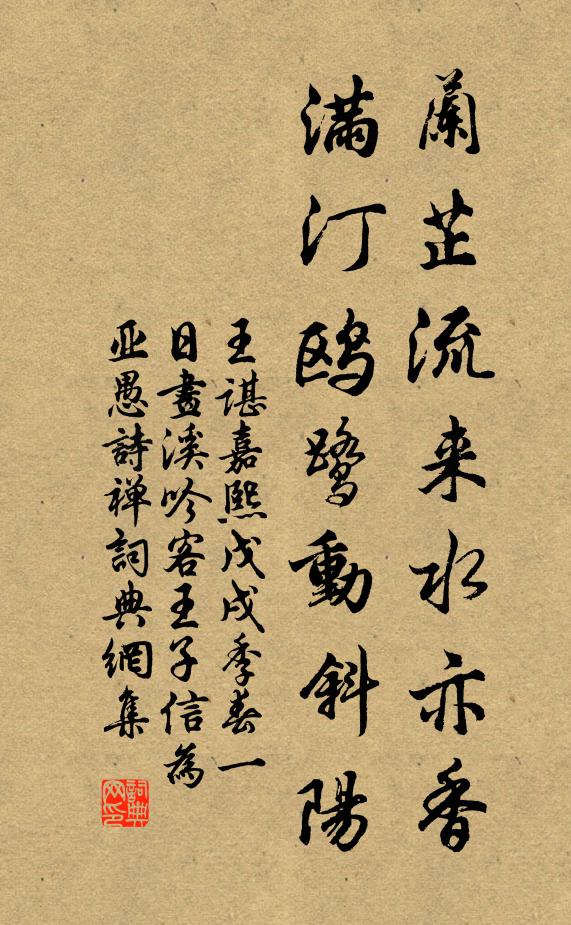 蘭芷流来水亦香
满汀鸥鹭動斜陽
王諶嘉熙戊戌季春一
日畫溪吟客王子信為
亚愚詩禅詞典網集
詞典网印